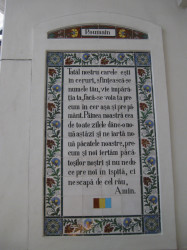 Roumain
Tatăl nostru carele eşti
în ceruri, sfinţească-se
numele tău, vie împără-
ţia ta, facă-se voia ta pre-
cum în cer aşa şi pre pă-
mânt. Pâinea noastră cea
de toate zilele dâne-o no-
uă astăzi şi ne iartă no-
uă păcatele noastre, pre-
cum şi noi iertăm păcă-
toşilor noştri şi nu ne du-
ce pre noi în ispită, ci
ne scapă de cel rău,
Amin.